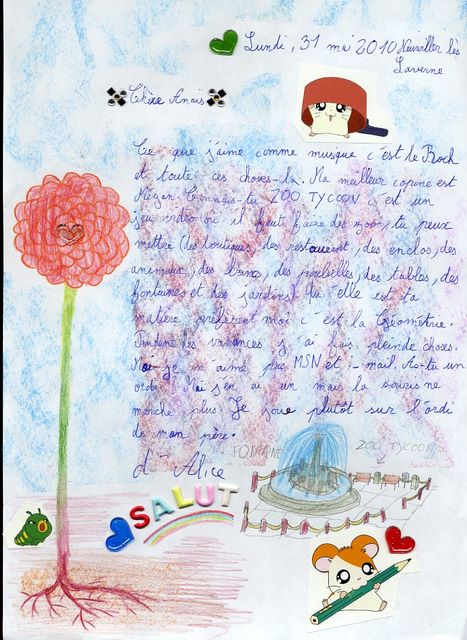 Lundi, 31 mai 2010 Neuviller lès
Laverne
Chère Anaïs
Ce que j'aime comme musque c'est le Roch
et toute ces choses-la. Ma meilleur copine est
Connais-tu ZOO TYCOON c'est un
jeu vidéo où il faut faire des zoo, tu peux
mettre (des boutiques, des restaurant, des enclos, des
animaux, des bancs, des poubelles, des tables, des
fontaines et des jardins) elle est ta
matière préférent moi c'est la Géométrie.
Pendent des vacances j'ai fais pleinde choses.
Moi je n'aime pas MSN et -mail. As-tu un
ordi? Moi j'en ai un mais la souris ne
marche plus. Je joue plutôt sur l'ordi
de mon père.
d'Alice
FONTAINE
ZOO TYCOON
SALUT